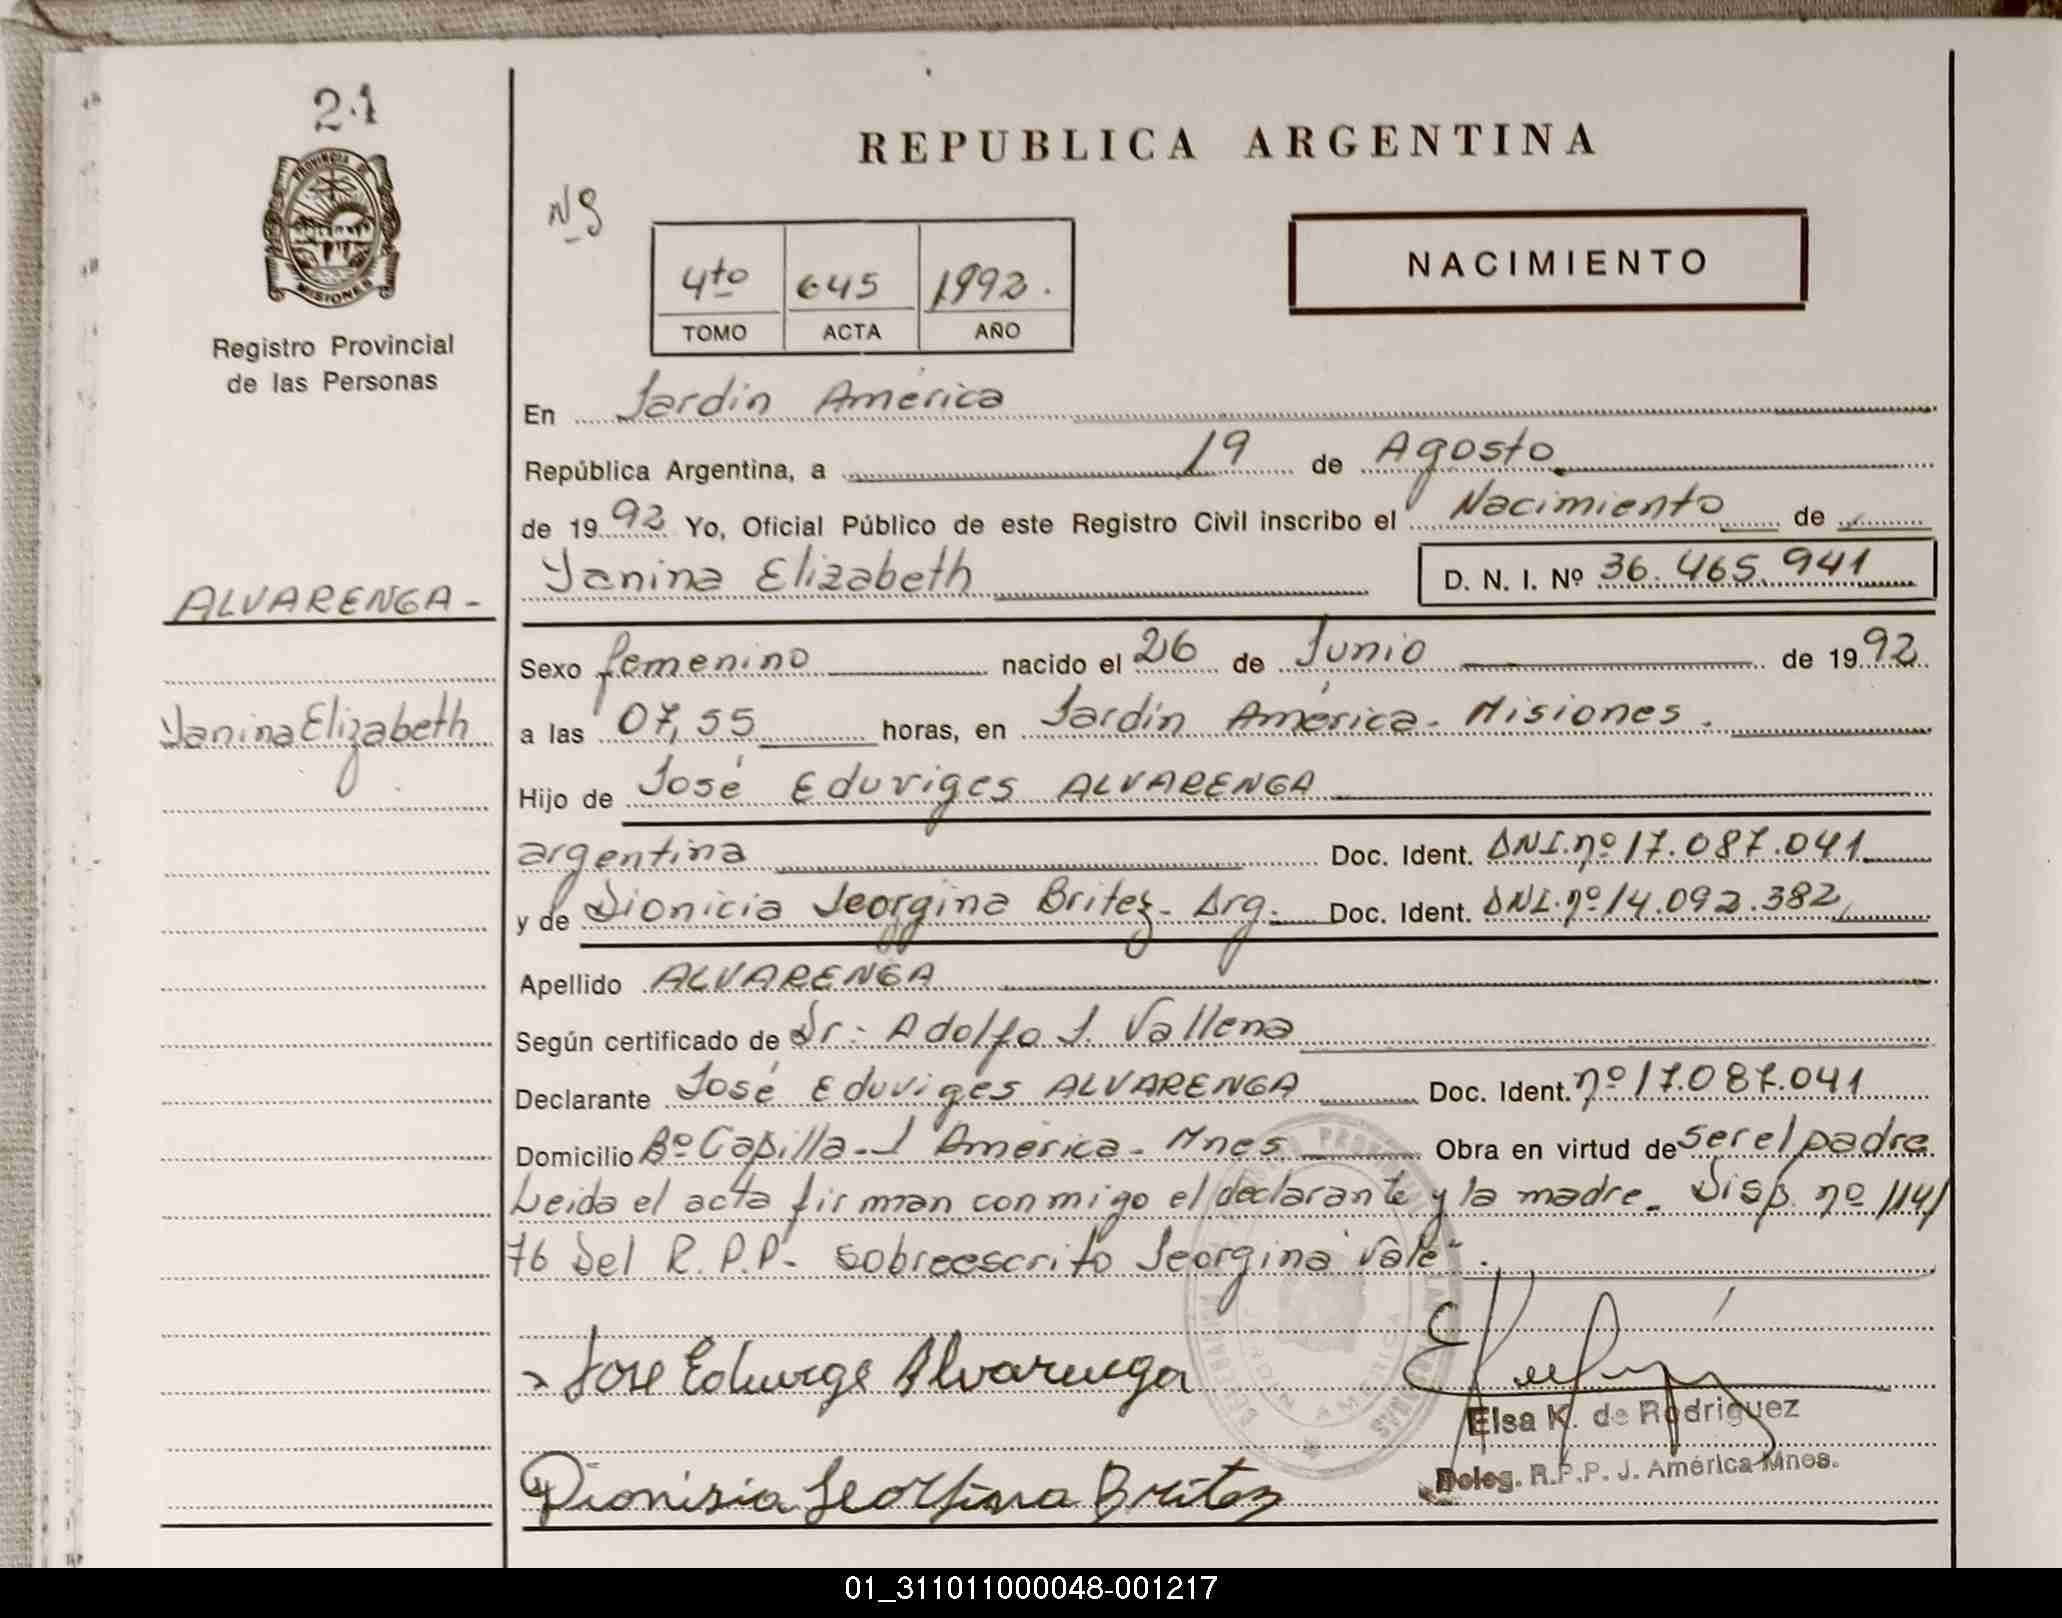 21
PROVINCIA DE
MISIONES
Registro Provincial
de las Personas
ALVARENGA -
Yanina Elizabeth
REPUBLICA ARGENTINA
Nº
4to 645 1992.
TOMO ACTA AÑO
NACIMIENTO
En Jardín América
República Argentina, a 19 de Agosto
de 1992 Yo, Oficial Público de este Registro Civil inscribo el Nacimiento de
Yanina Elizabeth D. N. I. Nº 36.465.941
Sexo femenino nacido el 26 de Junio de 1992
a las 07,55 horas, en Jardín América - Misiones.
Hijo de José Eduviges ALVARENGA
argentina Doc. Ident. DNI.nº 17.087.041
y de Dionicia Jeorgina Britez - Arg. Doc. Ident. DNI.nº 14.092.382
Apellido ALVARENGA
Según certificado de Dr: Adolfo J. Vallena
Declarante José Eduviges ALVARENGA Doc. Ident. nº 17.087.041
Domicilio Bº Capilla - J América - Mnes Obra en virtud de ser el padre
Leida el acta firman conmigo el declarante y la madre. Disp. nº 114/
76 Del R.P.P. - sobreescrito Jeorgina "Vale".
Jose Eduvige Alvarenga
Elsa K. de Rodriguez
Deleg. R.P.P. J. América-Mnes.
Dionisia Jeorgina Britez
JARDIN AMERICA
01_311011000048-001217